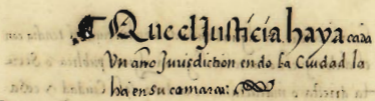 Que el Justicia haya cada
Un año Jurisdiction en do ka Ciudad la
ha en su camara: